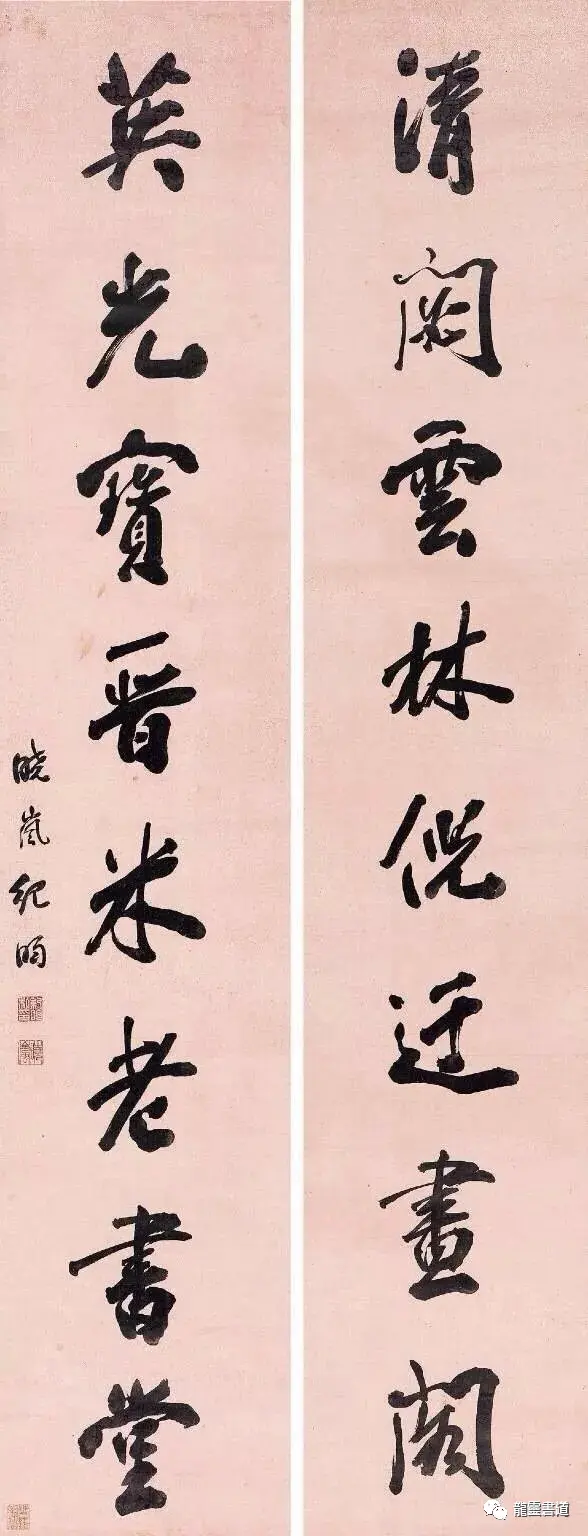 清閟雲林倪迂畫閣
英光寶晉米老書堂
曉嵐紀昀
龍靈書道